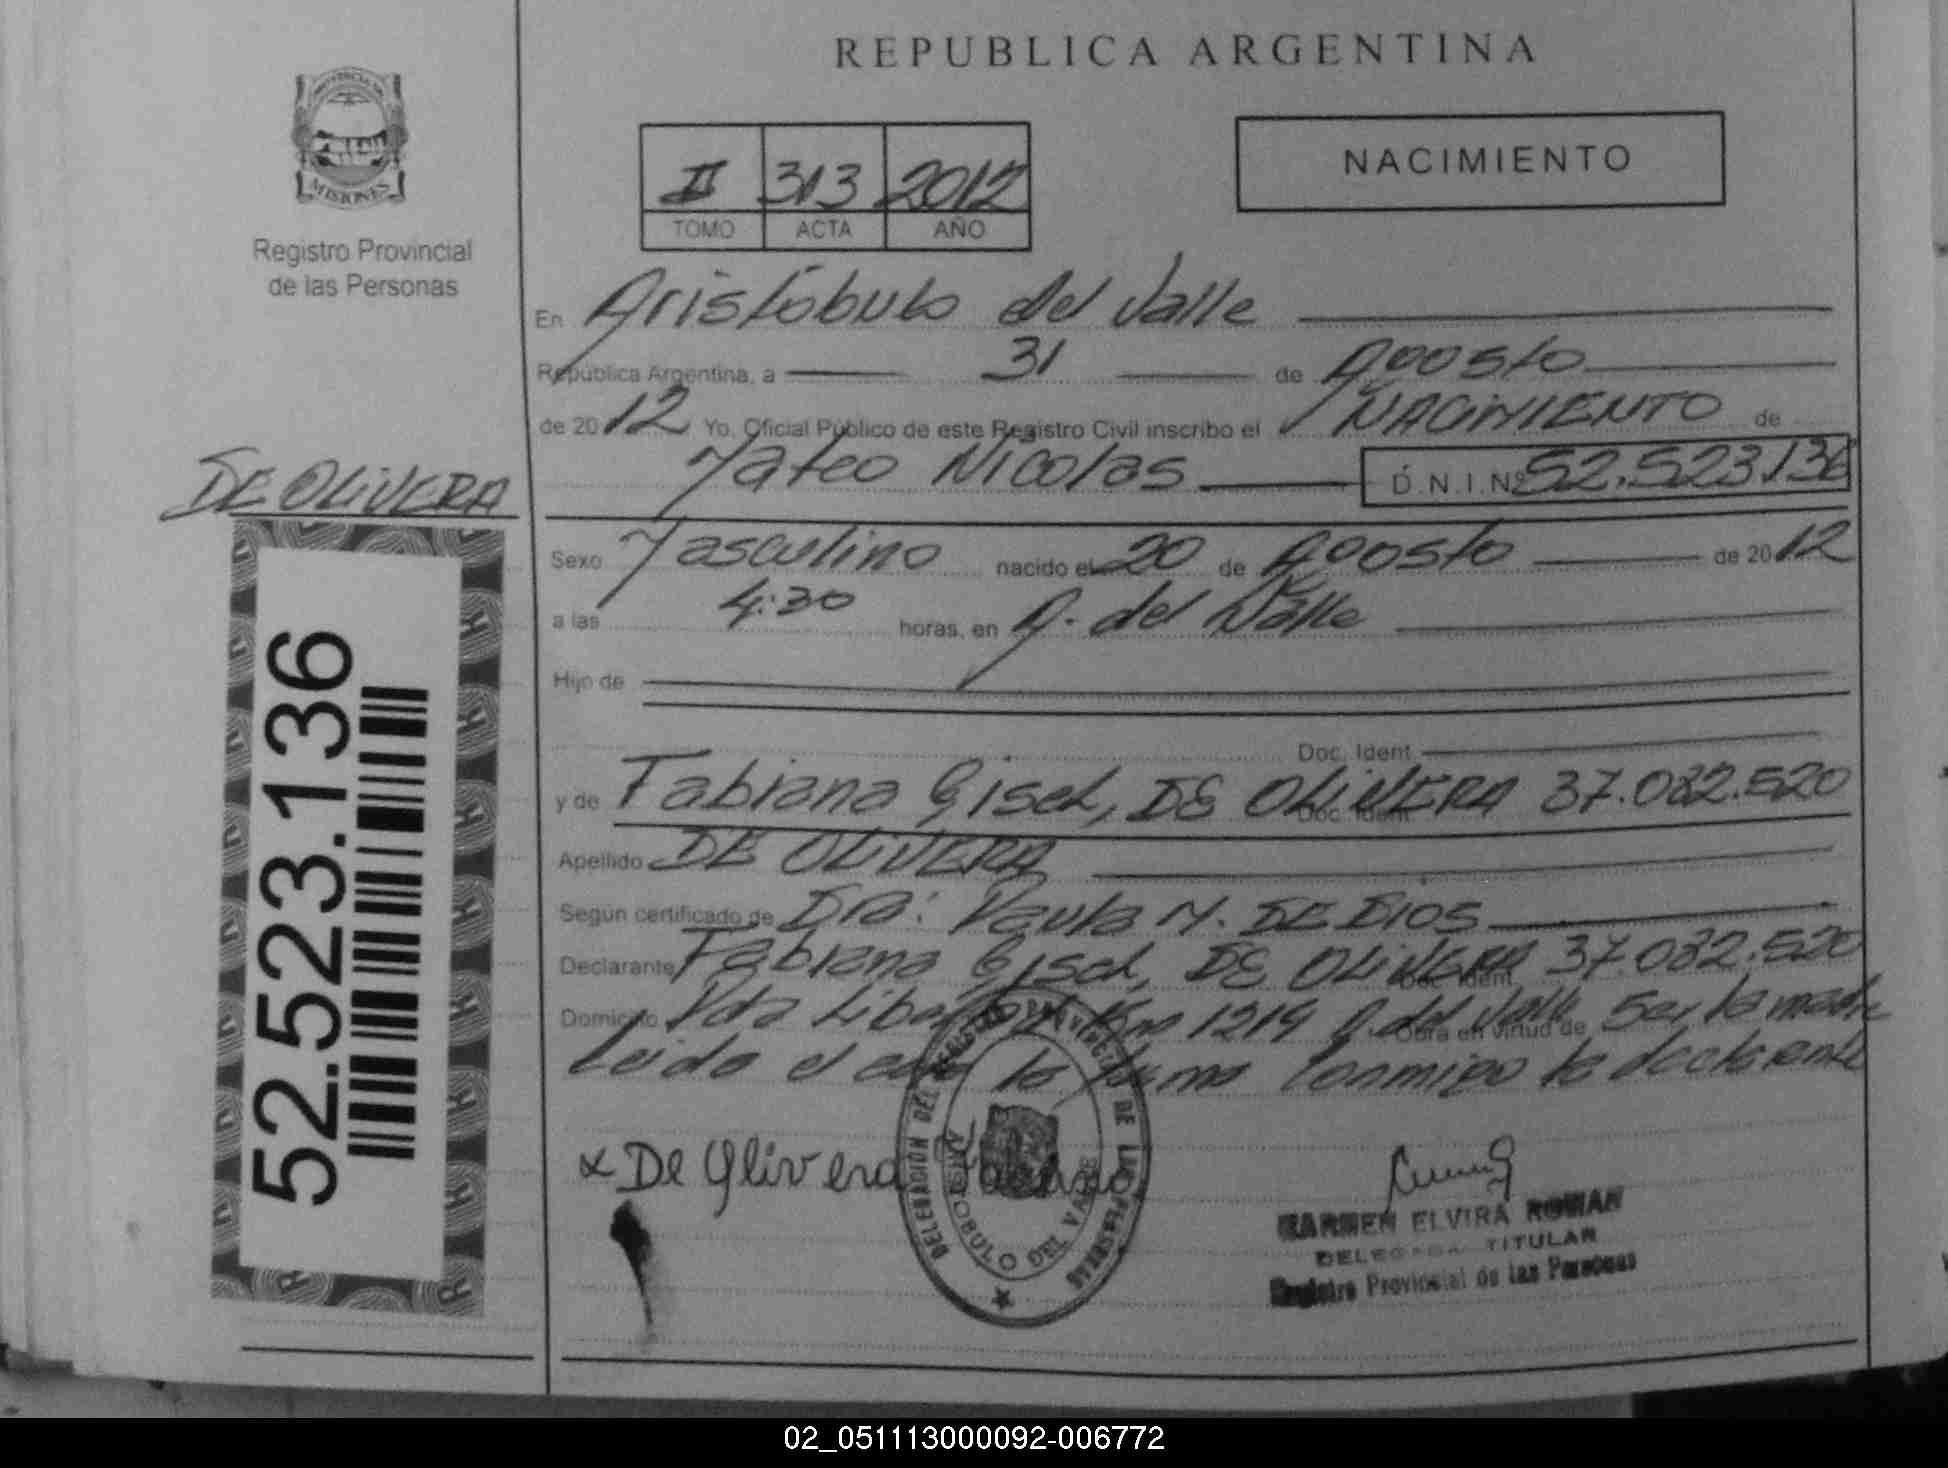 REPUBLICA ARGENTINA
PROVINCIA DE
MISIONES
Registro Provincial
de las Personas
II 313 2012
TOMO ACTA AÑO
NACIMIENTO
En Aristóbulo del Valle
República Argentina, a 31 de Agosto
de 2012 Yo, Oficial Público de este Registro Civil inscribo el NACIMIENTO de
Mateo Nicolas D.N.I.Nº 52.523.136
DE OLIVERA
52.523.136
Sexo Masculino nacido el 20 de Agosto de 2012
a las 4:30 horas, en A. del Valle
Hijo de
Doc. Ident.
y de Fabiana Gisel, DE OLIVERA Doc. Ident. 37.082.520
Apellido DE OLIVERA
Según certificado de Dra: Paula M. DE DIOS
Declarante Fabiana Gisel, DE OLIVERA Doc. Ident. 37.082.520
Domicilio Pdor Libertad Km 1219 A. del Valle Obra en virtud de Ser la madre
Leida el acta la firma conmigo la declarante
x De Olivera Fabiana
DELEGACION DEL REGISTRO PROVINCIAL DE LAS PERSONAS
ARISTOBULO DEL VALLE
CARMEN ELVIRA ROMAN
DELEGADA TITULAR
Registro Provincial de las Personas
02_051113000092-006772